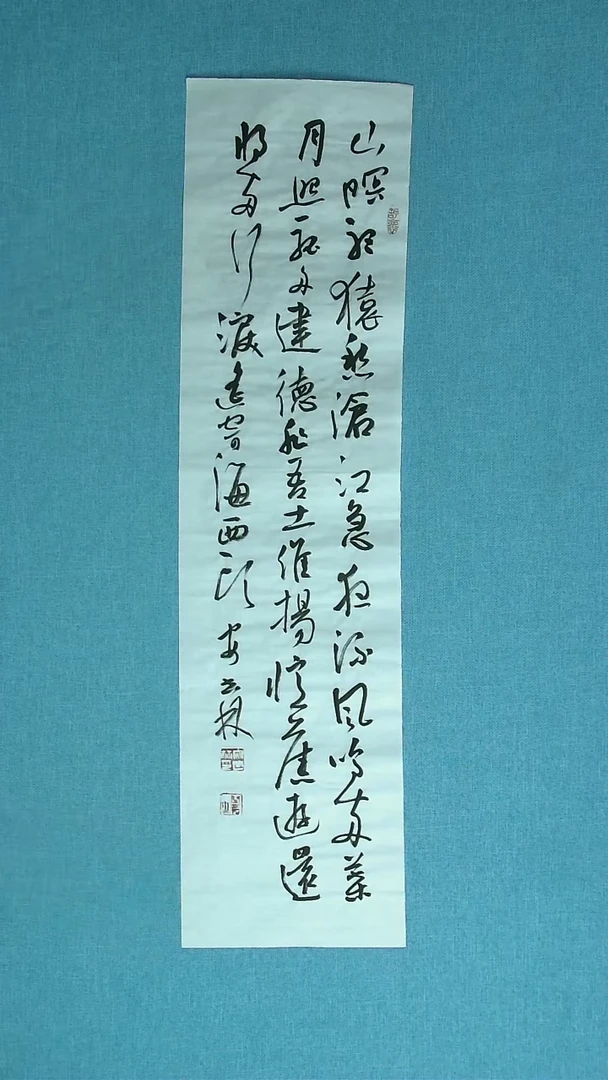 山暝聽猿愁滄江急夜流風鳴兩葉
月照一孤舟建德非吾土維揚憶舊遊還
將兩行淚遙寄海西頭